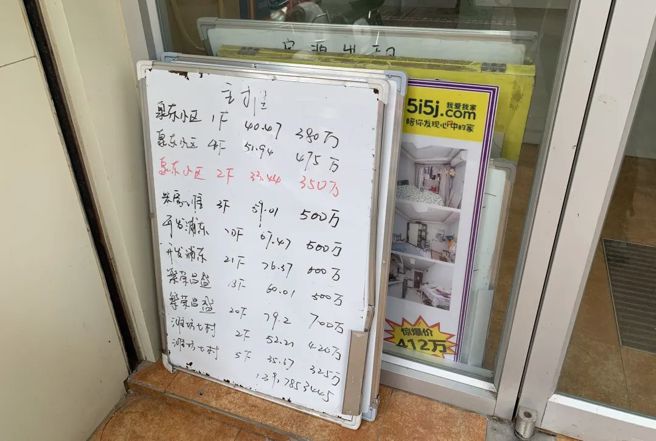 主推
泉东小区 1F 40.47 380万
泉东小区 4F 51.94 475万
泉东小区 2F 33.44 350万
3F 59.01 500万
开发浦东 10F 67.47 500万
开发浦东 21F 76.57 600万
繁荣昌盛 13F 60.01 500万
繁荣昌盛 20F 79.2 700万
潍坊七村 2F 52.21 420万
潍坊七村 5F 35.67 325万
房源出租
5i5j 我爱我家
.com
陪你发现心中的家
惊爆价
412万